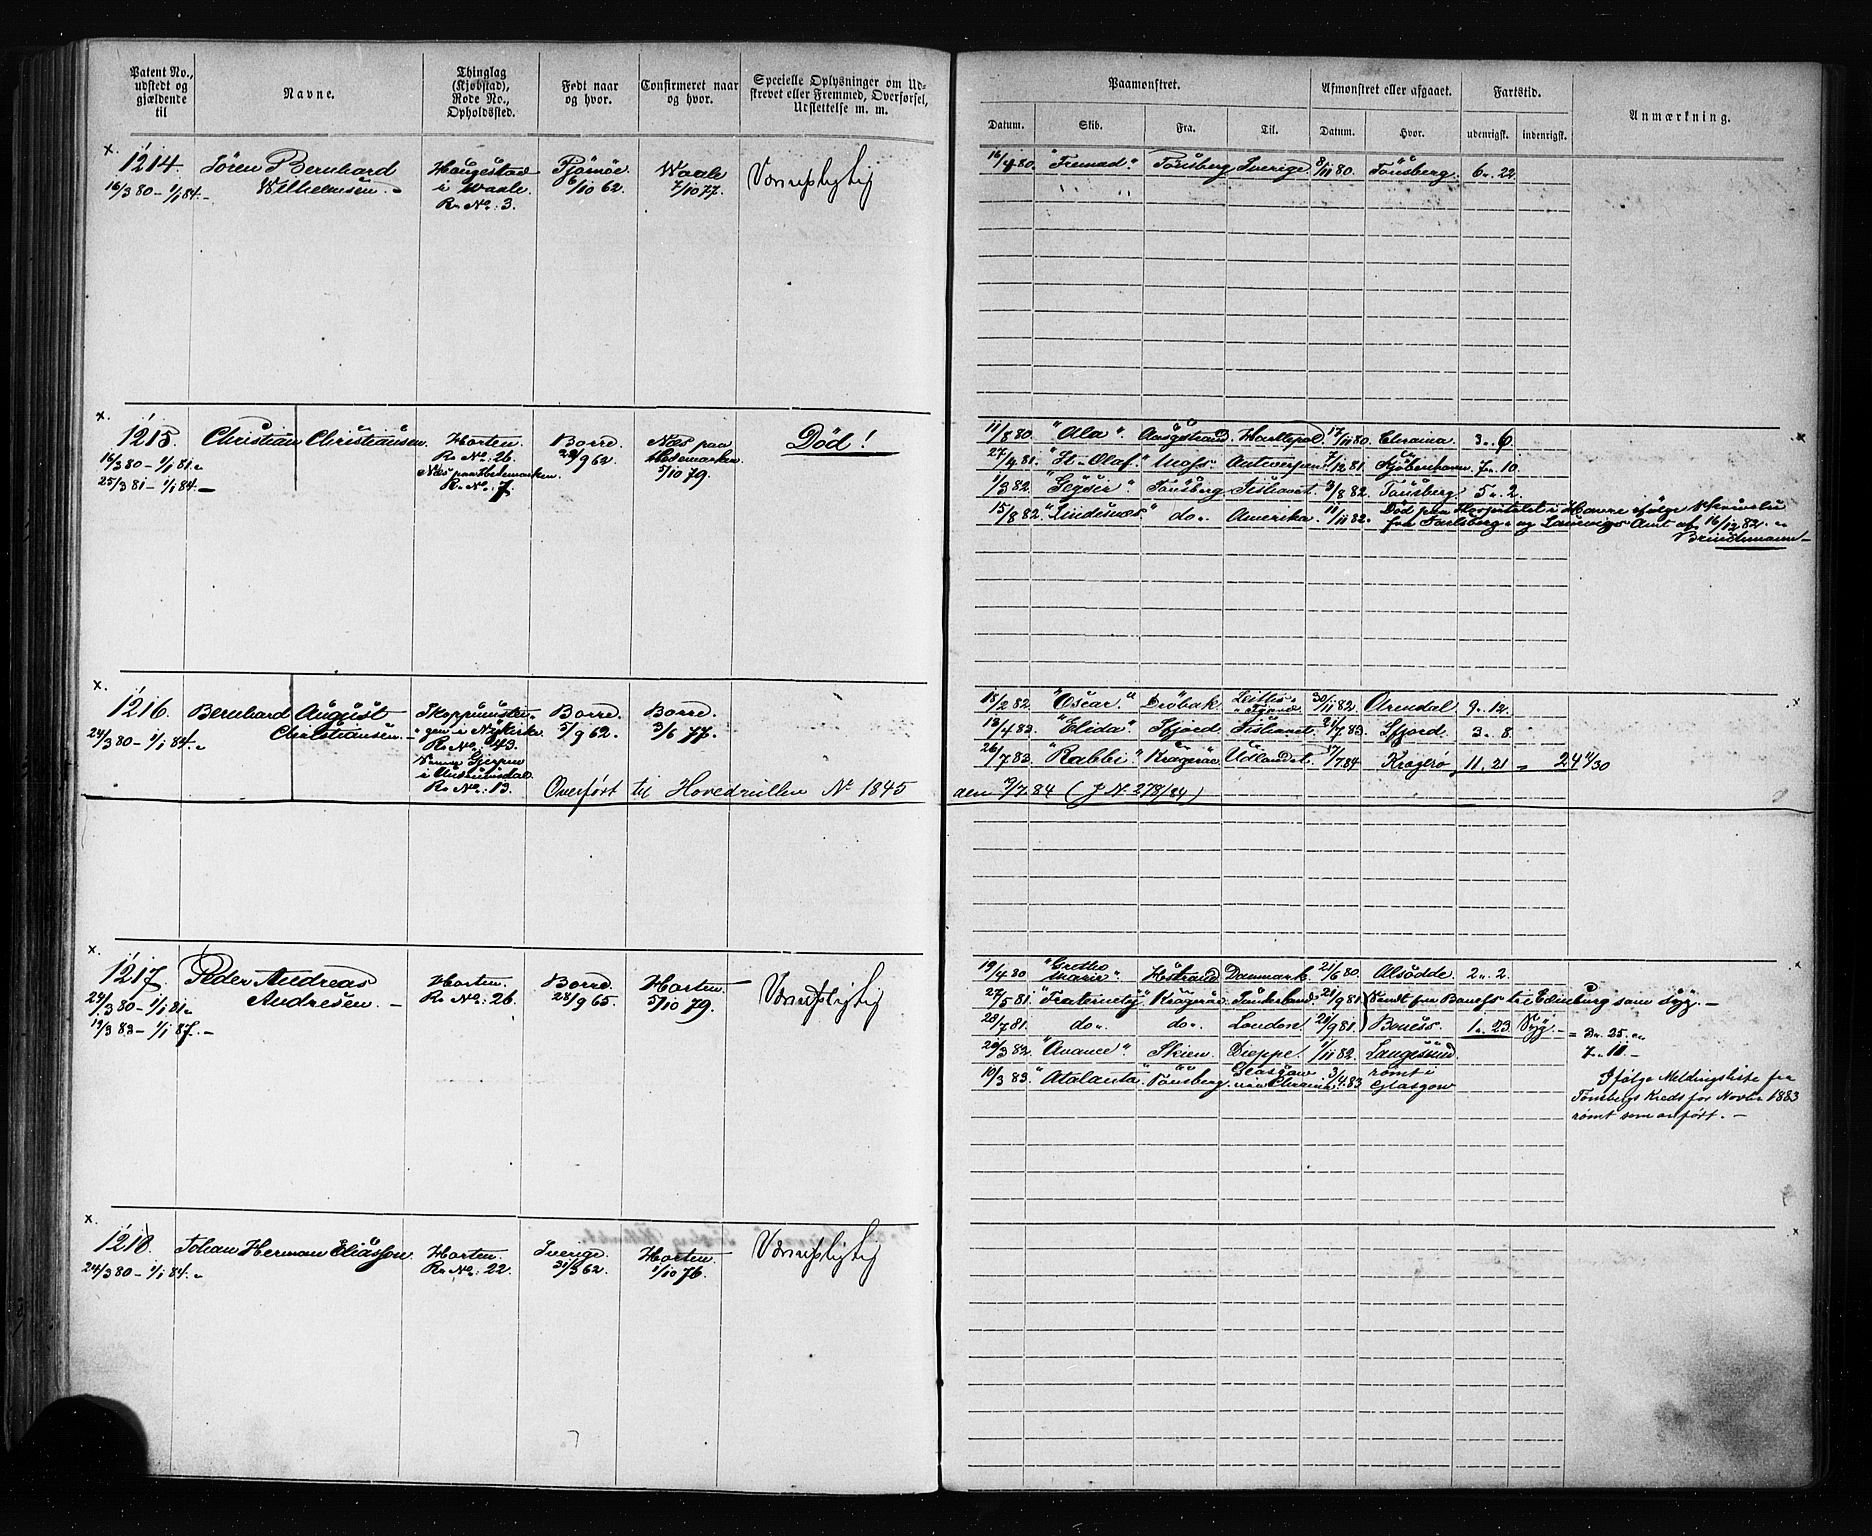 Patent No., udstedt og gjældende til
Navne.
Thinglag (Kjøbstad), Rode No., Opholdssted.
Født naar og hvor.
Confirmeret naar og hvor.
Specielle Oplysninger om Udstrevet eller Fremmed, Overførsel, Udslettelse m. m.
Paamønstret.
Datum.
Skib.
Fra.
Til.
Afmønstret eller afgaaet.
Datum.
Hvor.
Fartstid.
udenrigsk.
indenrigsk.
Anmærkning.
x.
1214.
16/3 80 - 1/1 84. -
Søren Bernhard
Wilhelmsen. -
Haugestad
i Waale.
R. No. 3.
Fjömöe
6/10 62.
Waale
7/10 77.
Værnepligtig
16/4 80. "Fremad." Tönsberg Sverige. 8/11 80. Tönsberg. 6. 22.
x.
1215.
16/3 80 - 1/1 81.
25/3 81 - 1/1 84. -
Christian Christiansen.
Horten.
R. No. 26.
Næs paa Hedemarken.
R. No. 7.
Borre.
28/9 62.
Næs paa
Hedemarken
5/10 79.
Død!
11/8 80. "Ala". Aasgstrand Hartlepol. 17/11 80. Chrania. 3. 6.
27/4 81. "St. Olaf." Moss. Antwerpen. 7/12 81. Kjöbenhavn. 7. 10.
1/3 82. "Geysir". Tönsberg Fishavet. 3/8 82. Tönsberg. 5. 2.
15/8 82. "Lindesnæs." do. Amerika. 11/11 82. Död paa Hospitalet i Havre ifølge Skrivelse
fra Jarlsberg og Laurvigs Amt af 16/12 82.
Brinchmann -
x.
1216.
24/3 80 - 1/1 84.
Bernhard August
Christiansen. -
Skoppumsten-
gen i Nykirke
R. No. 43.
Gjerpen
R. No. 13.
Borre.
5/9 62.
Borre.
3/6 77.
15/2 82. "Oscar." Dröbak. 30/11 82. Arendal 9. 12.
13/4 83. "Elida" Sfjord Fishavet. 21/7 83. Sfjord. 3. 8.
26/7 83. "Rabbi" Kragerøe Udlandet. 5/7 84 Kragerø 11. 21 24 4/30
Overført til Hovedrullen No 1845
den 9/7 84 (J N. 278/84)
x.
1217.
24/3 80 - 1/1 81.
19/3 83 - 1/1 87. -
Peder Andreas
Andresen. -
Horten.
R. No. 26.
Borre.
28/9 65.
Horten.
5/10 79.
Værnepligtig
19/4 80. "Grethe
Marie". Hstrand Danmark. 21/6 80. Alsödde. 2. 2.
27/5 81. "Fraternety" Kragerøe Sunderland. 21/9 81. Sendt fra Boness til Edinburg som syg. -
28/7 81. do. do. London. 21/9 81. Boness. 1. 23. Syg. - = 3. 25.
20/3 82. "Avance". Skien. Dieppe. 1/11 82. Langesund. 7. 10. -
10/3 83. "Atalanta". Tönsberg. Glasgow 3/4 83 rømt i
Glasgow
Ifølge Meldingsliste fra
Tønsbergs Kreds for Novbr 1883
rømt som anført. -
x.
1218.
24/3 80 - 1/1 84.
Johan Herman Eliasson.
Horten.
R. No. 22.
Sverige.
31/3 62.
Horten.
1/10 76.
Værnepligtig